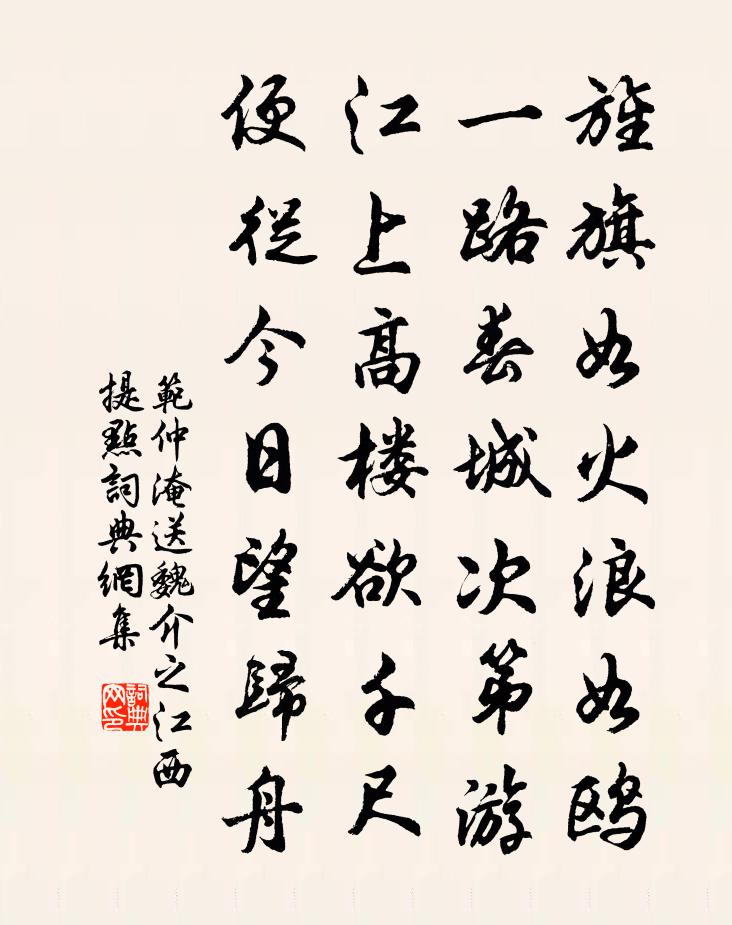 旌旗如火浪如鸥
一路春城次第游
江上高楼欲千尺
便從今日望歸舟
範仲淹送魏介之江西
提點詞典網集
詞典网印